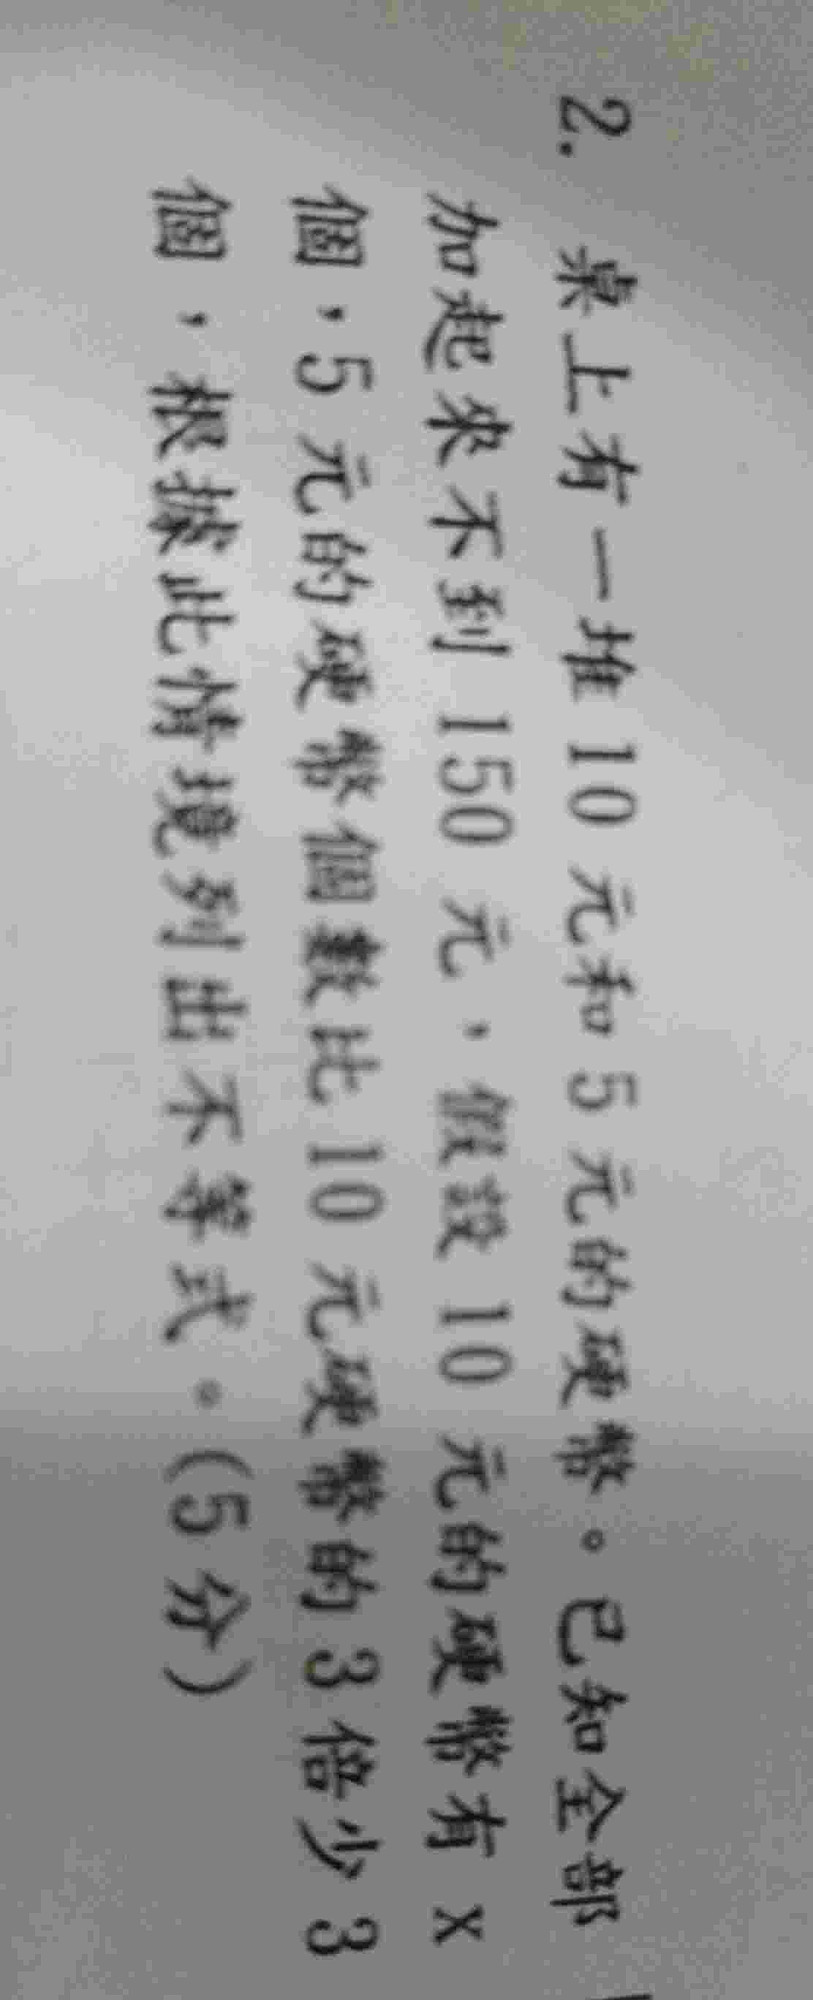 2. 桌上有一堆 10 元和 5 元的硬幣。已知全部
加起來不到 150 元，假設 10 元的硬幣有 x
個，5 元的硬幣個數比 10 元硬幣的 3 倍少 3
個，根據此情境列出不等式。(5 分)